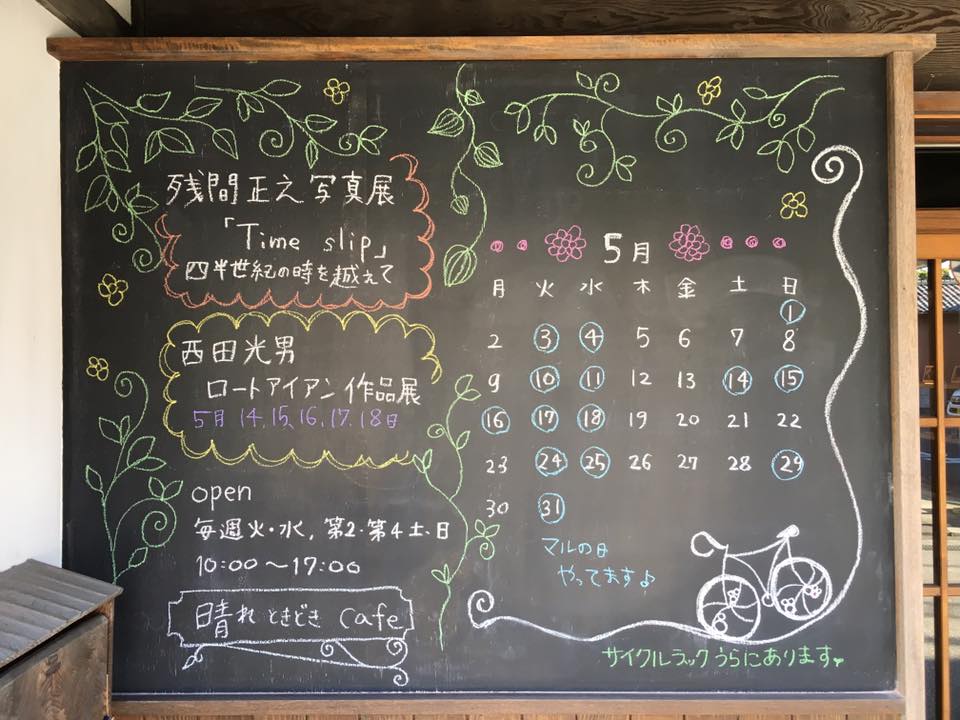 残間正之写真展
「Time slip」
四半世紀の時を越えて
西田光男
ロートアイアン作品展
5月 14,15,16,17,18日
open
毎週火・水,第2・第4土・日
10:00～17:00
晴れときどき Cafe
5月
月 火 水 木 金 土 日
1
2 3 4 5 6 7 8
9 10 11 12 13 14 15
16 17 18 19 20 21 22
23 24 25 26 27 28 29
30 31
マルの日
やってます♪
サイクルラックうらにあります♥